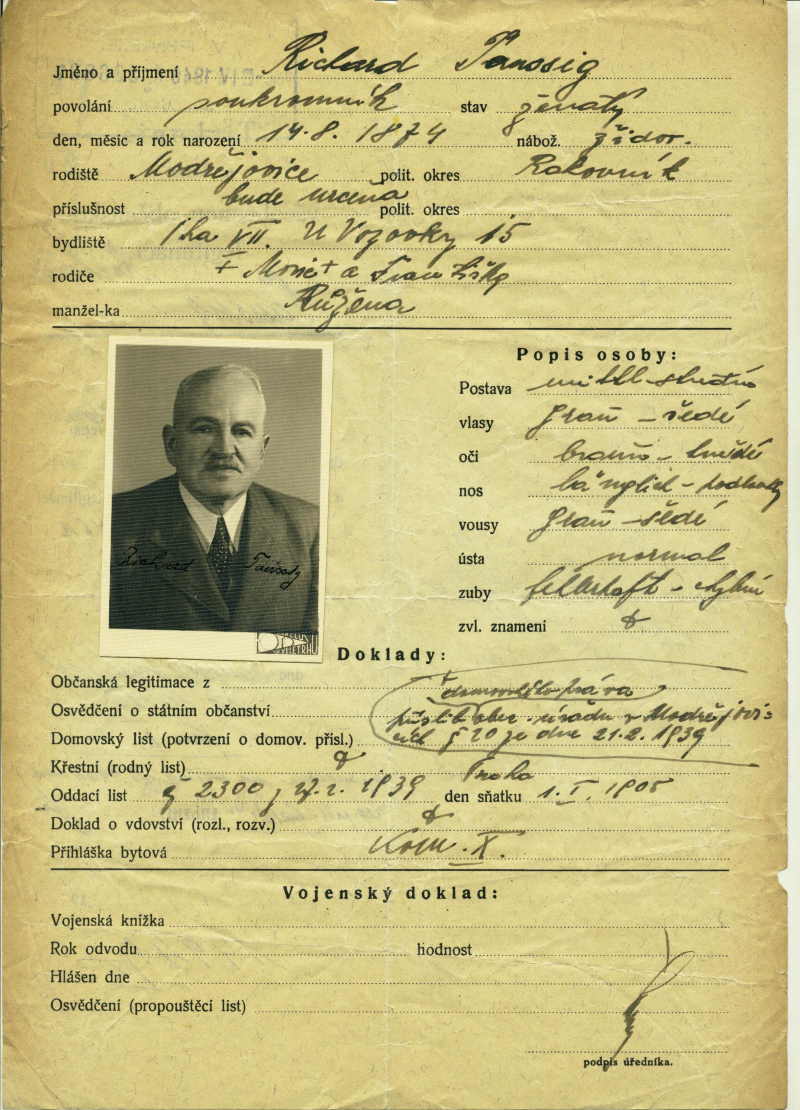 Jméno a příjmení Richard
povolání soukromník stav ženatý
den, měsíc a rok narození 14.8. 1874 nábož. židov.
rodiště Modřejovice polit. okres Rakovník
příslušnost bude určena polit. okres
bydliště Pha VII. U Vozovky 15
rodiče + Moric + a Františka
manžel-ka Růžena
Popis osoby:
Postava mittel - střední
vlasy grau - šedé
oči braun - hnědé
nos länglich - podlouhlý
vousy grau - šedé
ústa normal
zuby fehlerhaft - chybné
zvl. znamení
Richard
Doklady:
Občanská legitimace z
Osvědčení o státním občanství domovského práva
příslib obec. úřadu v Modřejovi-
Domovský list (potvrzení o domov. přísl.) cích § 20 ze dne 21.2. 1939
Křestní (rodný list) Praha
Oddací list č 2300 1939 den sňatku 1. I. 1905
Doklad o vdovství (rozl., rozv.)
Přihláška bytová Kom. X.
Vojenský doklad:
Vojenská knížka
Rok odvodu hodnost
Hlášen dne
Osvědčení (propouštěcí list)
podpis úředníka.